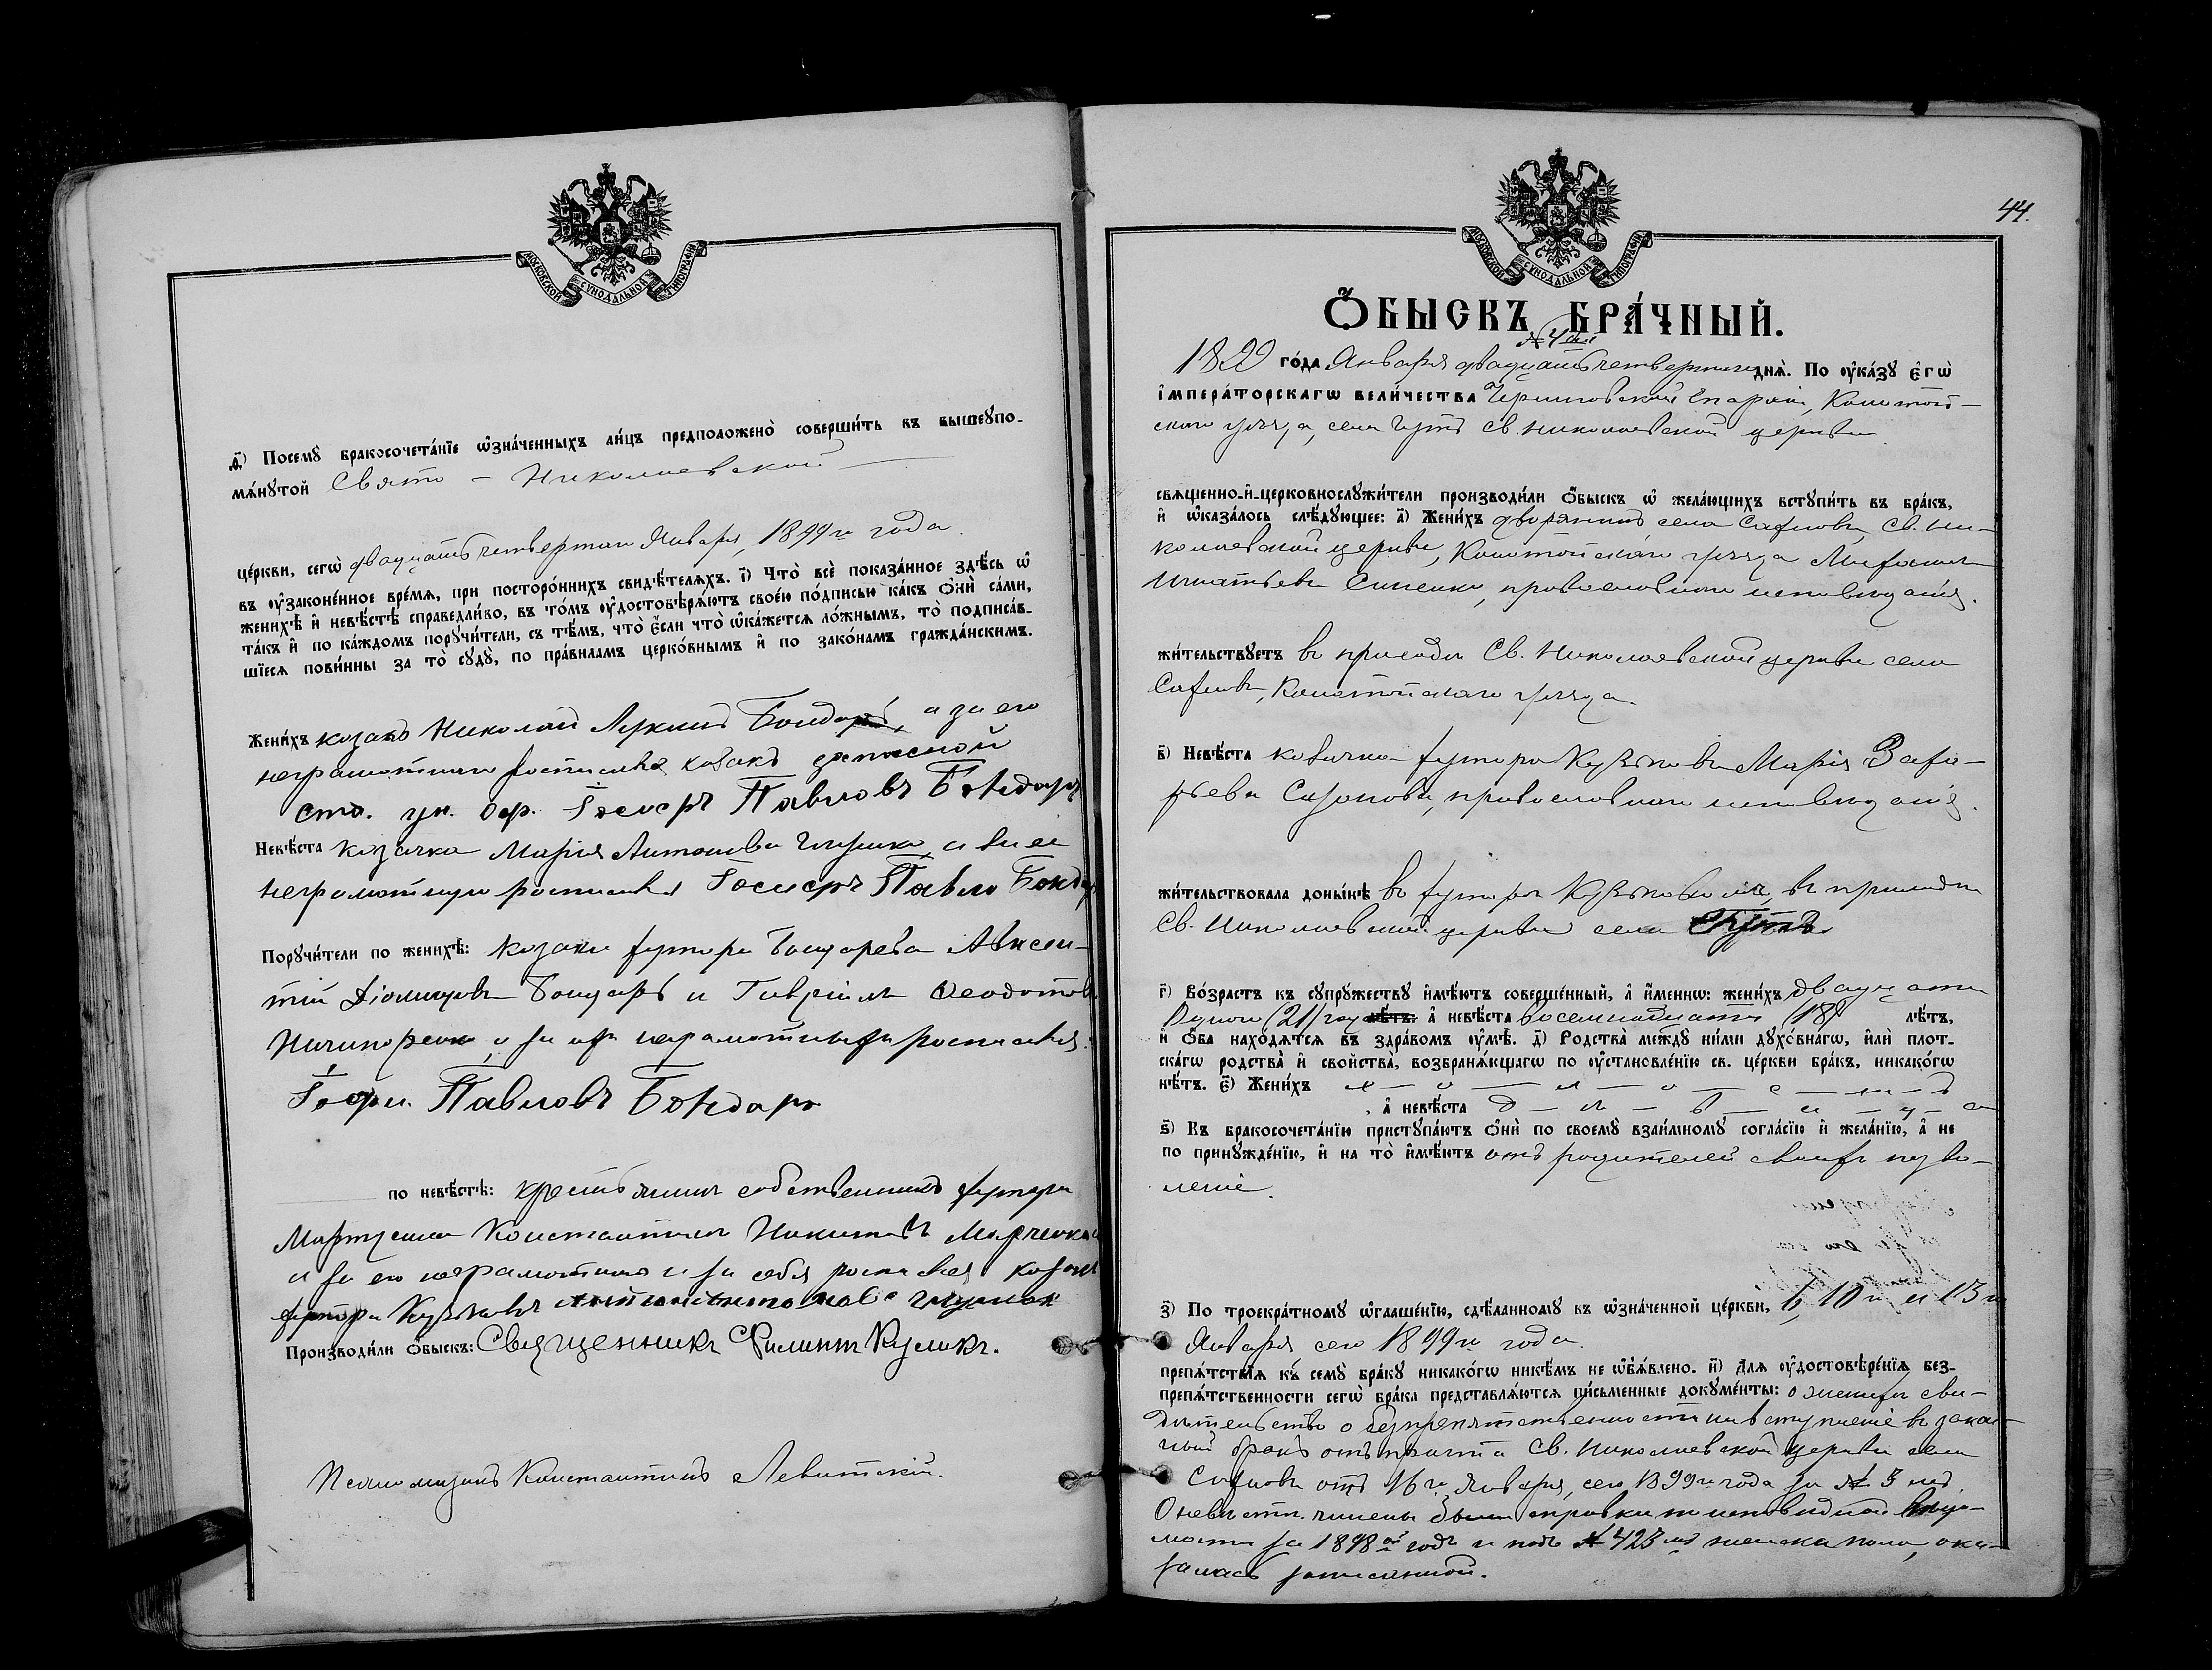 МОСКОВСКОЙ СУНОДАЛЬНОЙ ТИПОГРАФІИ
д҃) Посемꙋ̀ бракосочета́нїе ѡ҆зна́ченныхъ ли́цъ предположено̀ соверши́ть въ вышеꙋпо-
мѧ́нꙋтой Свято - Николаевской
це́ркви, сегѡ̀ двадцать четвертаго Января, 1899 го года.
въ ᲂу҆зако́ненное вре́мѧ, при посторо́ннихъ свидѣ́телѧхъ. і҃) Что̀ всѐ показа́нное здѣ́сь ѡ҆
женихѣ̀ и҆ невѣ́стѣ справедли́во, въ то́мъ ᲂу҆достовѣрѧ́ютъ свое́ю по́дписью ка́къ ѻ҆нѝ са́ми,
та́къ и҆ по ка́ждомъ порꙋчи́тели, съ тѣ́мъ, что̀ є҆́сли что̀ ѡ҆ка́жетсѧ ло́жнымъ, то̀ подписа́в-
шїесѧ пови́нны за то̀ сꙋдꙋ̀, по пра́виламъ церко́внымъ и҆ по зако́намъ гражда́нскимъ.
Жени́хъ козакъ Николай Бондарь, а за его
неграмотнаго росписался козакъ запасной
ст. ун. оф. Іосифъ Павловъ Бондарь
Невѣ́ста козачка Марія Антонова а за ее
неграмотную росписался Іосифъ Павло Бондар
Порꙋчи́тели по женихѣ̀: козаки хутора Бондарева Авксен-
тій Діомидовъ Бондарь и Гавріилъ Ѳеодотов
Ничипоренко, а за ихъ неграмотныхъ росписался
Іосиф. Павловъ Бондарь
по невѣ́стѣ: крестьянинъ собственникъ хутора
Константинъ Никитинъ Марченко
и за его неграмотнаго и за себя росписался козакъ
хутора Кузьковъ
Производи́ли ѻ҆́быскъ: Священникъ Филиппъ Куликъ.
Псаломщикъ Константинъ Левитскій.
44.
МОСКОВСКОЙ СУНОДАЛЬНОЙ ТИПОГРАФІИ
Ѻ҆́БЫСКЪ БРА́ЧНЫЙ.
№ 4й
1899 го́да Января двадцать четвертаго днѧ̀. По ᲂу҆ка́зꙋ є҆гѡ̀
і҆мпера́торскагѡ вели́чества Черниговской Епархіи, Конотоп-
скаго уѣзда, села Гутъ Св. Николаевской церкви
свѧще́нно-и҆-церковнослꙋжи́тели производи́ли ѻ҆́быскъ ѡ҆ жела́ющихъ встꙋпи́ть въ бра́къ,
и҆ ѡ҆каза́лось слѣ́дꙋющее: а҃) Жени́хъ дворянинъ села Сахновъ, Св. Ни-
колаевской церкви, Конотопскаго уѣзда
Игнатьевъ Синенко, православнаго исповѣданія.
жи́тельствꙋетъ въ приходѣ Св. Николаевской церкви села
Сахновъ, Конотопскаго уѣзда.
в҃) Невѣ́ста козачка хутора Кузьковъ Марія Заха-
рьева Сазонова, православнаго исповѣданія.
жи́тельствовала доны́нѣ въ хуторѣ въ приходѣ
Св. Николаевской церкви села Гутъ.
г҃) Во́зрастъ къ сꙋпрꙋ́жествꙋ и҆мѣ́ютъ соверше́нный, а҆ и҆́меннѡ: жени́хъ двадцати
одного (21) году лѣ́тъ. а҆ невѣ́ста восемнадцати (18) лѣ́тъ,
и҆ ѻ҆́ба нахо́дѧтсѧ въ здра́вомъ ᲂу҆мѣ̀. д҃) Родства̀ междꙋ̀ ни́ми дꙋхо́внагѡ, и҆лѝ пло́т-
скагѡ родства̀ и҆ сво́йства̀, возбранѧ́ющагѡ по ᲂу҆становле́нїю св. це́ркви бра́къ, никако́гѡ
нѣ́тъ. є҃) Жени́хъ х — о — л — о — с — т — ъ
, а҆ невѣ́ста д — ѣ — в — и — ц — а
ѕ҃) Къ бракосочета́нїю пристꙋпа́ютъ ѻ҆нѝ по своемꙋ̀ взаи́мномꙋ согла́сїю и҆ жела́нїю, а҆ не
по принꙋжде́нїю, и҆ на то̀ и҆мѣ́ютъ отъ родителей своихъ позво-
леніе.
з҃) По троекра́тномꙋ ѡ҆глаше́нїю, сдѣ́ланномꙋ въ ѡ҆зна́ченной це́ркви, 6, 10 и 13 го
Января сего 1899 го года.
препѧ́тствїѧ къ семꙋ̀ бра́кꙋ никако́гѡ никѣ́мъ не ѡ҆б̾ѧ́влено. и҃) Длѧ ᲂу҆достовѣре́нїѧ без-
препѧ́тственности сегѡ̀ бра́ка представлѧ́ютсѧ пи́сьменные докꙋме́нты: о женихѣ сви-
дѣтельство о безпрепятственности на вступленіе въ закон-
ный бракъ отъ причта Св. Николаевской церкви села
Сахновъ отъ 16 го Января, сего 1899 го года за № 5 мъ.
О невѣстѣ чинены были справки по исповѣдной вѣдо-
мости за 1898 ой годъ и подъ № 423 мъ женска пола, ока-
залась записанной.